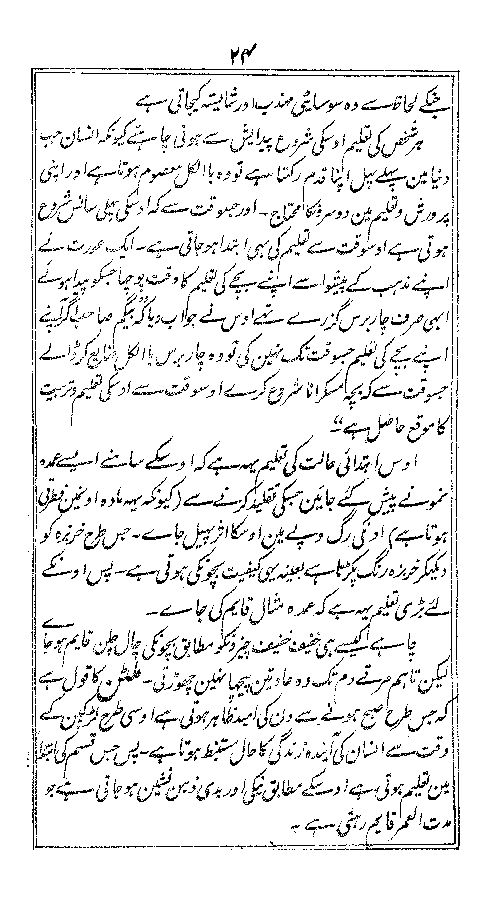 ۲۴
جنکے لحاظ سے وہ سوسائیٹی مہذب اور شایستہ کیجاتی ہے
ہر شخص کی تعلیم اوسکی شروع پیدایش سے ہونی چاہئے کیونکہ انسان جب
دنیا مین پہلے پہل اپنا قدم رکہتا ہے تو وہ باالکل معصوم ہوتا ہے اور اپنی
پرورش و تعلیم مین دوسرونکا محتاج ۔ اور جسوقت سے کہ اوسکی پہلی سانس شروع
ہوتی ہے اوسوقت سے تعلیم کی بہی ابتدا ہو جاتی ہے ۔ ایک عورت نے
اپنے مذہب کے پیشوا سے اپنے بچے کی تعلیم کا وقت پوچہا جسکو پیدا ہوئے
ابہی صرف چار برس گزرے تہے اوس نے جواب دیا کہ "بیگم صاحب اگر آپنے
اپنے بچے کی تعلیم جسوقت تک نہین کی تو وہ چار برس باالکل ضایع کر ڈالے
جسوقت سے کہ بچہ مسکرانا شروع کرے اوسوقت سے اوسکی تعلیم و تربیت
کا موقع حاصل ہے"
اوس ابتدائی حالت کی تعلیم یہہ ہے کہ اوسکے سامنے ایسے عمدہ
نمونے پیش کئے جاین جسکی تقلید کرنے سے (کیونکہ یہہ مادہ اونمین فطرتی
ہوتا ہے) اونکی رگ و پے مین اوسکا اثر پہیل جاے ۔ جس طرح خربزہ کو
دیکہکر خربزہ رنگ پکڑتا ہے بعینہ یہی کیفیت بچونکی ہوتی ہے ۔ پس اونکے
لئے بڑی تعلیم یہہ ہے کہ عمدہ مثال قایم کی جاے ۔
چاہے کیسے ہی خفیف خفیف چیزونکو مطابق بچونکی چال چلن قایم ہو جاے
لیکن تاہم مرتے دم تک وہ عادتین پیچہا نہین چہوڑتی ۔ ملٹن کا قول ہے
کہ جس طرح صبح ہونے سے دن کی امید ظاہر ہوتی ہے اوسی طرح لڑکپن کے
وقت سے انسان کی آیندہ زندگی کا حال مستنبط ہوتا ہے ۔ پس جس قسم کی ابتدا
مین تعلیم ہوتی ہے اوسکے مطابق نیکی اور بدی ذہن نشین ہو جاتی ہے جو
مدت العمر قایم رہتی ہے ۔